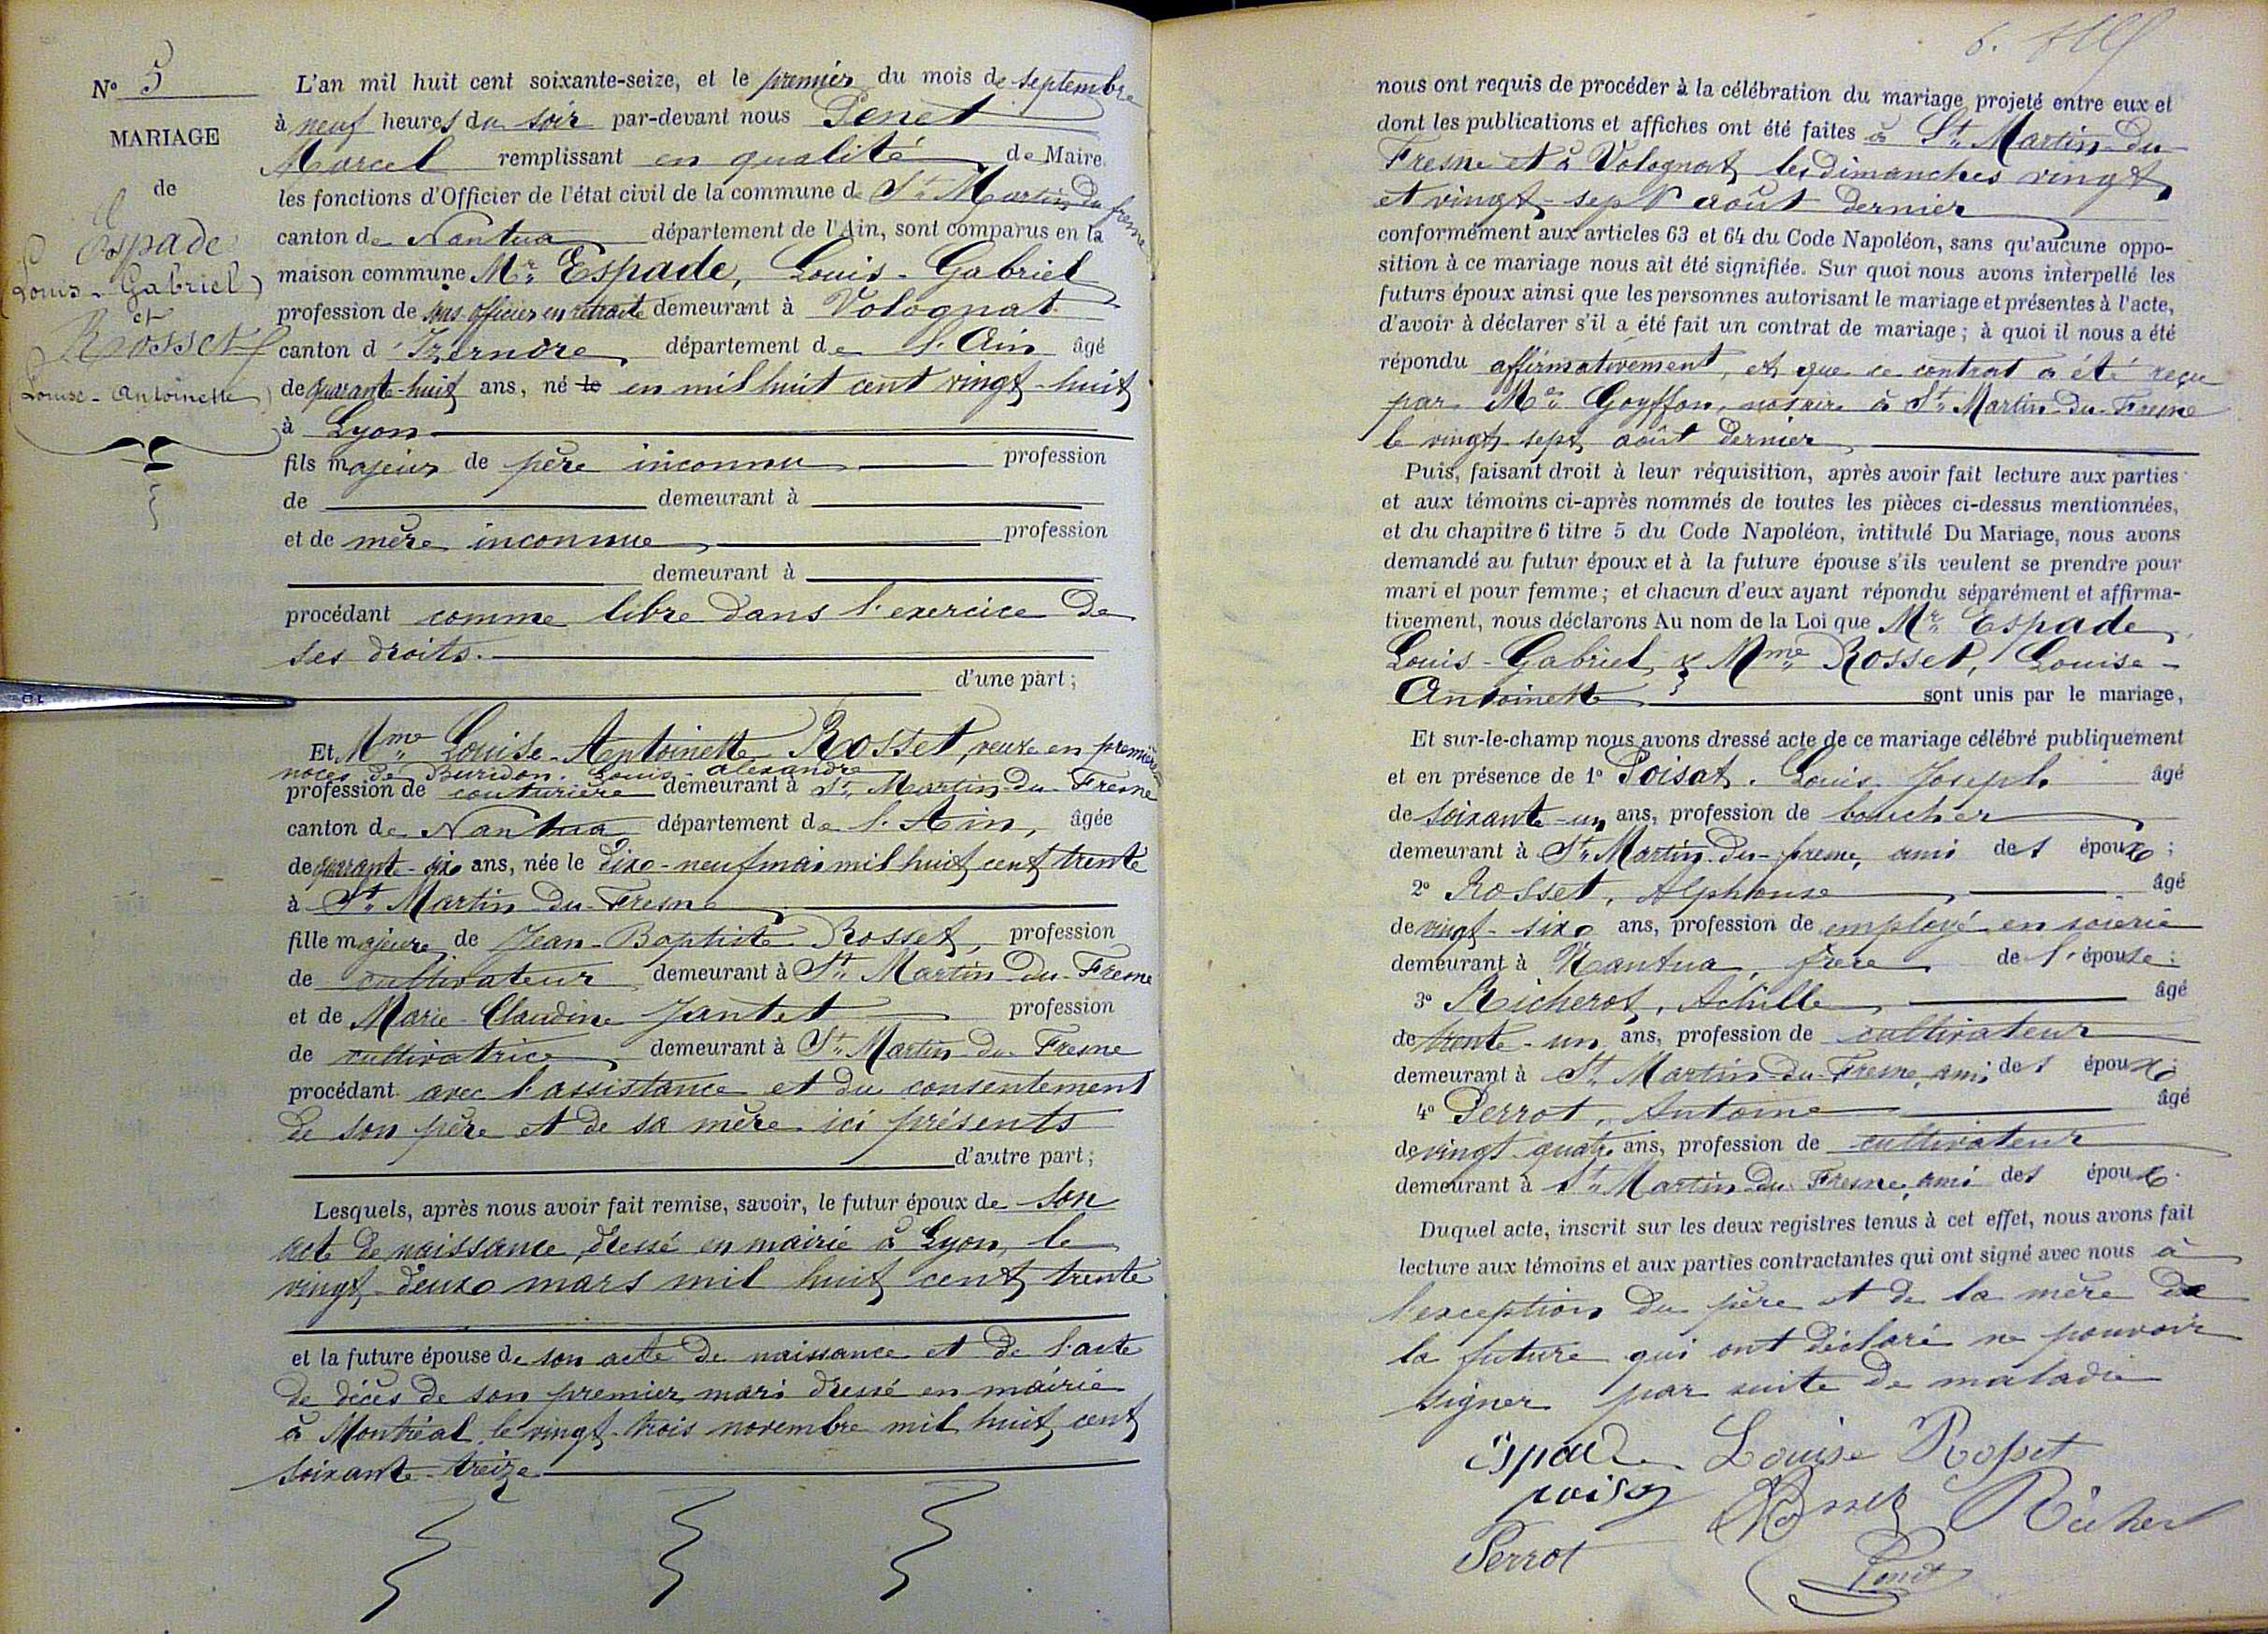 N° 5
MARIAGE
de
Espade
Louis-Gabriel
et
Rosset
Louise-Antoinette
L'an mil huit cent soixante-seize, et le premier du mois de septembre
à neuf heures du soir par-devant nous Penet
Marcel remplissant en qualité de Maire
les fonctions d'Officier de l'état civil de la commune de St Martin du fresne
canton de Nantua département de l'Ain, sont comparus en la
maison commune Mr Espade, Louis-Gabriel
profession de sous officier en retraite demeurant à Volognat
canton d'Izernore département de l'Ain âgé
de quarante-huit ans, né le en mil huit cent vingt-huit
à Lyon
fils majeur de père inconnu profession
de demeurant à
et de mère inconnue profession
demeurant à
procédant comme libre dans l'exercice de
ses droits.
d'une part;
Et Mme Louise-Antoinette Rosset, veuve en premières
noces de Buridon Louis-alexandre
profession de couturière demeurant à St Martin-du-Fresne
canton de Nantua département de l'Ain, âgée
de quarante-six ans, née le dix-neuf mai mil huit cent trente
à St Martin-du-Fresne
fille majeure de Jean-Baptiste Rosset, profession
de cultivateur demeurant à St Martin-du-Fresne
et de Marie-Claudine Jantet profession
de cultivatrice demeurant à St Martin-du-Fresne
procédant avec l'assistance et du consentement
de son père et de sa mère ici présents
d'autre part;
Lesquels, après nous avoir fait remise, savoir, le futur époux de son
acte de naissance dressé en mairie à Lyon, le
vingt-deux mars mil huit cent trente
et la future épouse de son acte de naissance et de l'acte
de décès de son premier mari dressé en mairie
à Montréal le vingt-trois novembre mil huit cent
soixante-treize
6.
nous ont requis de procéder à la célébration du mariage projeté entre eux et
dont les publications et affiches ont été faites à St Martin-du-
Fresne et à Volognat les dimanches vingt
et vingt-sept août dernier
conformément aux articles 63 et 64 du Code Napoléon, sans qu'aucune oppo-
sition à ce mariage nous ait été signifiée. Sur quoi nous avons interpellé les
futurs époux ainsi que les personnes autorisant le mariage et présentes à l'acte,
d'avoir à déclarer s'il a été fait un contrat de mariage; à quoi il nous a été
répondu affirmativement, et que ce contrat a été reçu
par Me Goyffon, notaire à St Martin-du-Fresne
le vingt-sept août dernier
Puis, faisant droit à leur réquisition, après avoir fait lecture aux parties
et aux témoins ci-après nommés de toutes les pièces ci-dessus mentionnées,
et du chapitre 6 titre 5 du Code Napoléon, intitulé Du Mariage, nous avons
demandé au futur époux et à la future épouse s'ils veulent se prendre pour
mari et pour femme; et chacun d'eux ayant répondu séparément et affirma-
tivement, nous déclarons Au nom de la Loi que Mr Espade,
Louis-Gabriel, & Mme Rosset, Louise-
Antoinette sont unis par le mariage,
Et sur-le-champ nous avons dressé acte de ce mariage célébré publiquement
et en présence de 1° Poisat. Louis Joseph. âgé
de soixante-un ans, profession de boucher
demeurant à St Martin-du-fresne, ami des époux;
2° Rosset, Alphonse âgé
de vingt-six ans, profession de employé en soierie
demeurant à Nantua, frère de l'épouse;
3° Richerot, Achille âgé
de trente-un ans, profession de cultivateur
demeurant à St Martin-du-Fresne, ami des époux;
4° Perrot, Antoine âgé
de vingt-quatre ans, profession de cultivateur
demeurant à St Martin du Fresne, ami des époux.
Duquel acte, inscrit sur les deux registres tenus à cet effet, nous avons fait
lecture aux témoins et aux parties contractantes qui ont signé avec nous à
l'exception du père et de la mère de
la future qui ont déclaré ne pouvoir
signer par suite de maladie
Espade Louise Rosset
Perrot
Penet